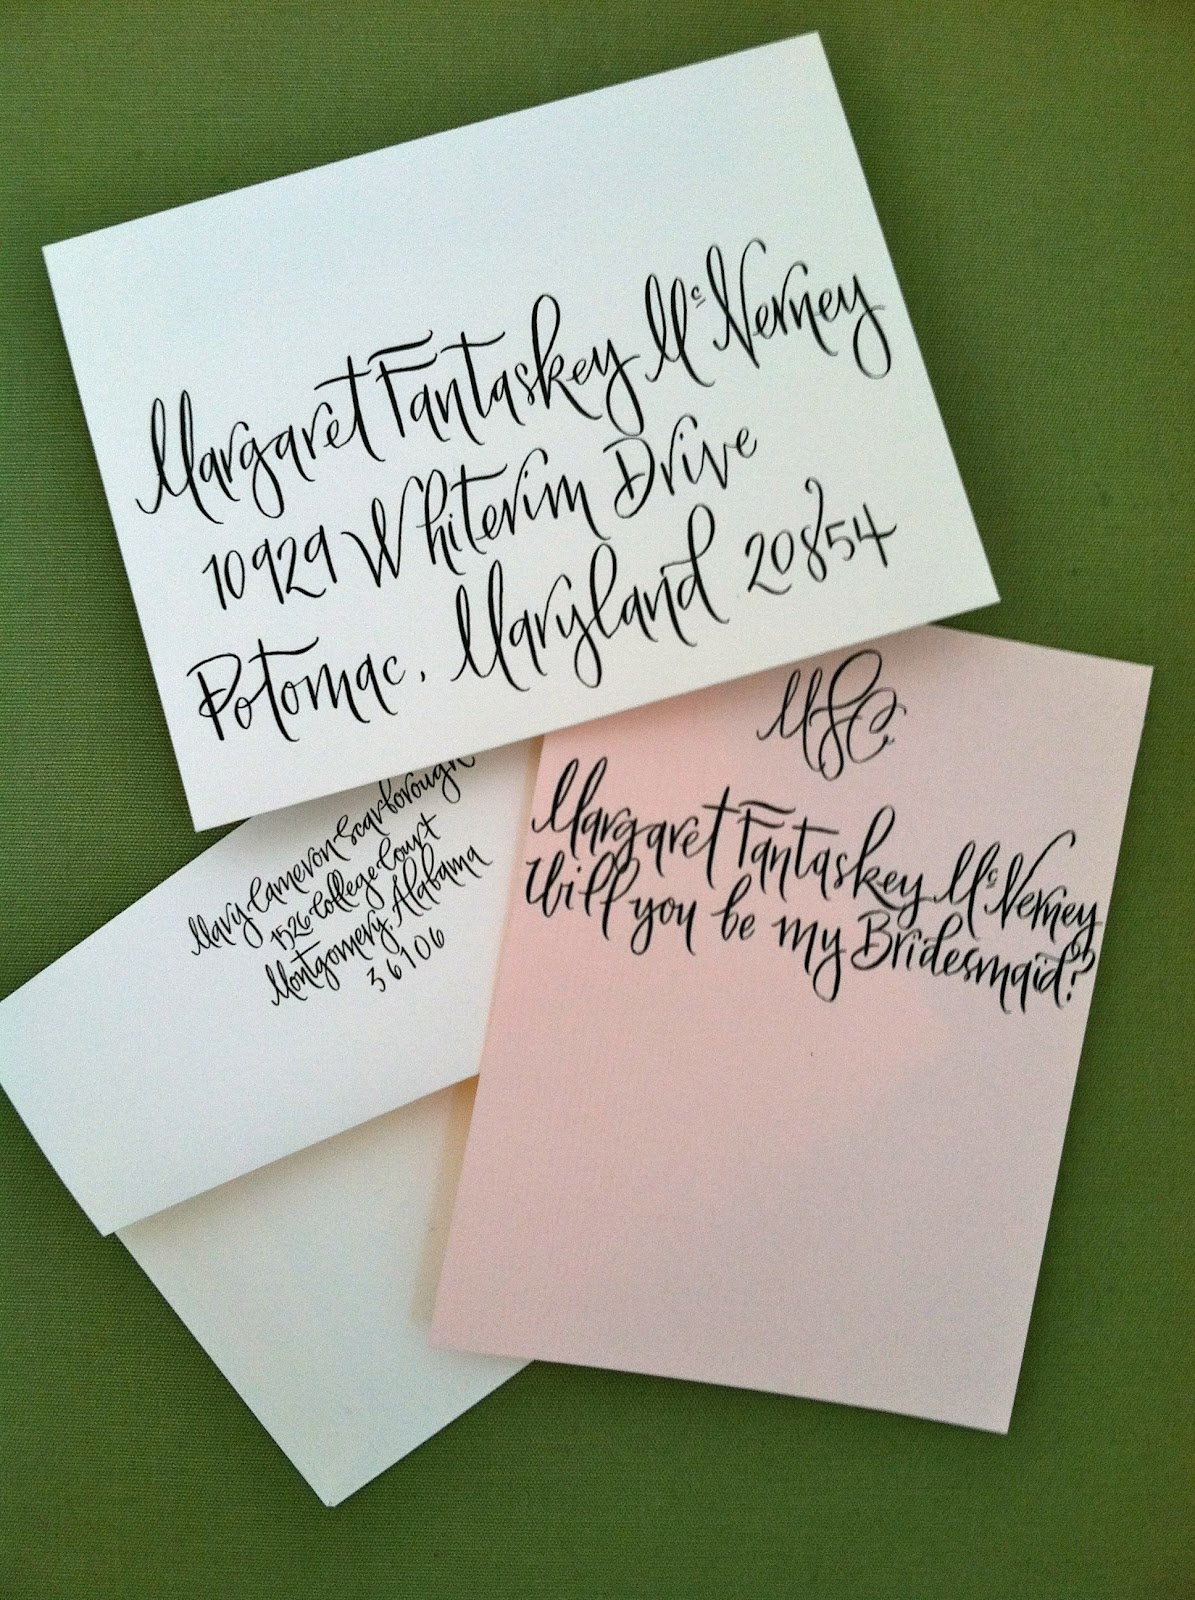 Margaret Fantaskey McNerney
10929 Whiterim Drive
Potomac, Maryland 20854
Mary Cameron Scarborough
1526 College Court
Montgomery, Alabama
36106
MSC
Margaret Fantaskey McNerney
Will you be my Bridesmaid?